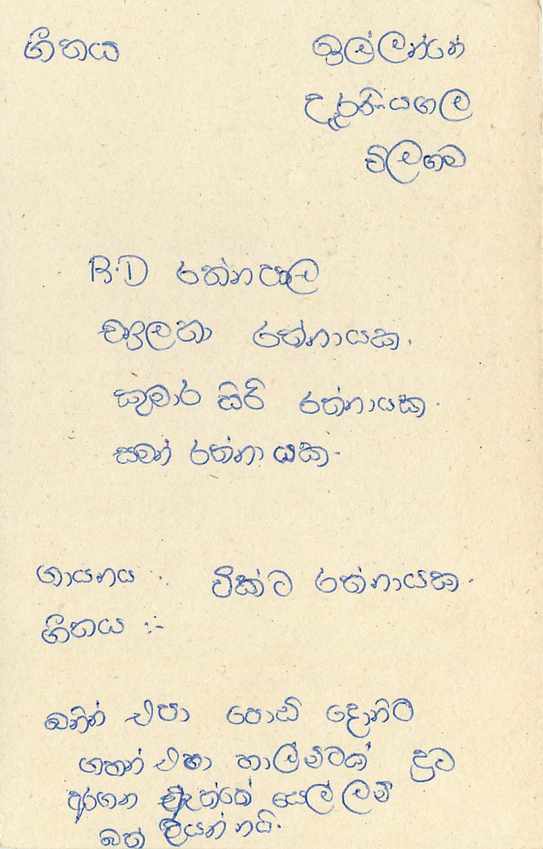 ගීතය ඉල්ලන්නේ
දැරණියගල
විලගම
R.D රත්නපාල
චාලතා රත්නායක.
කුමාර සිරි රත්නායක.
සමන් රත්නායක.
ගායනය : වික්ට රත්නායක.
ගීතය :-
එපා පොඩි දෝනිටි
ගහන් එපා හාල්
අරගන ඇත්තේ සෙල්ලන්
බත් උයන්නයි.